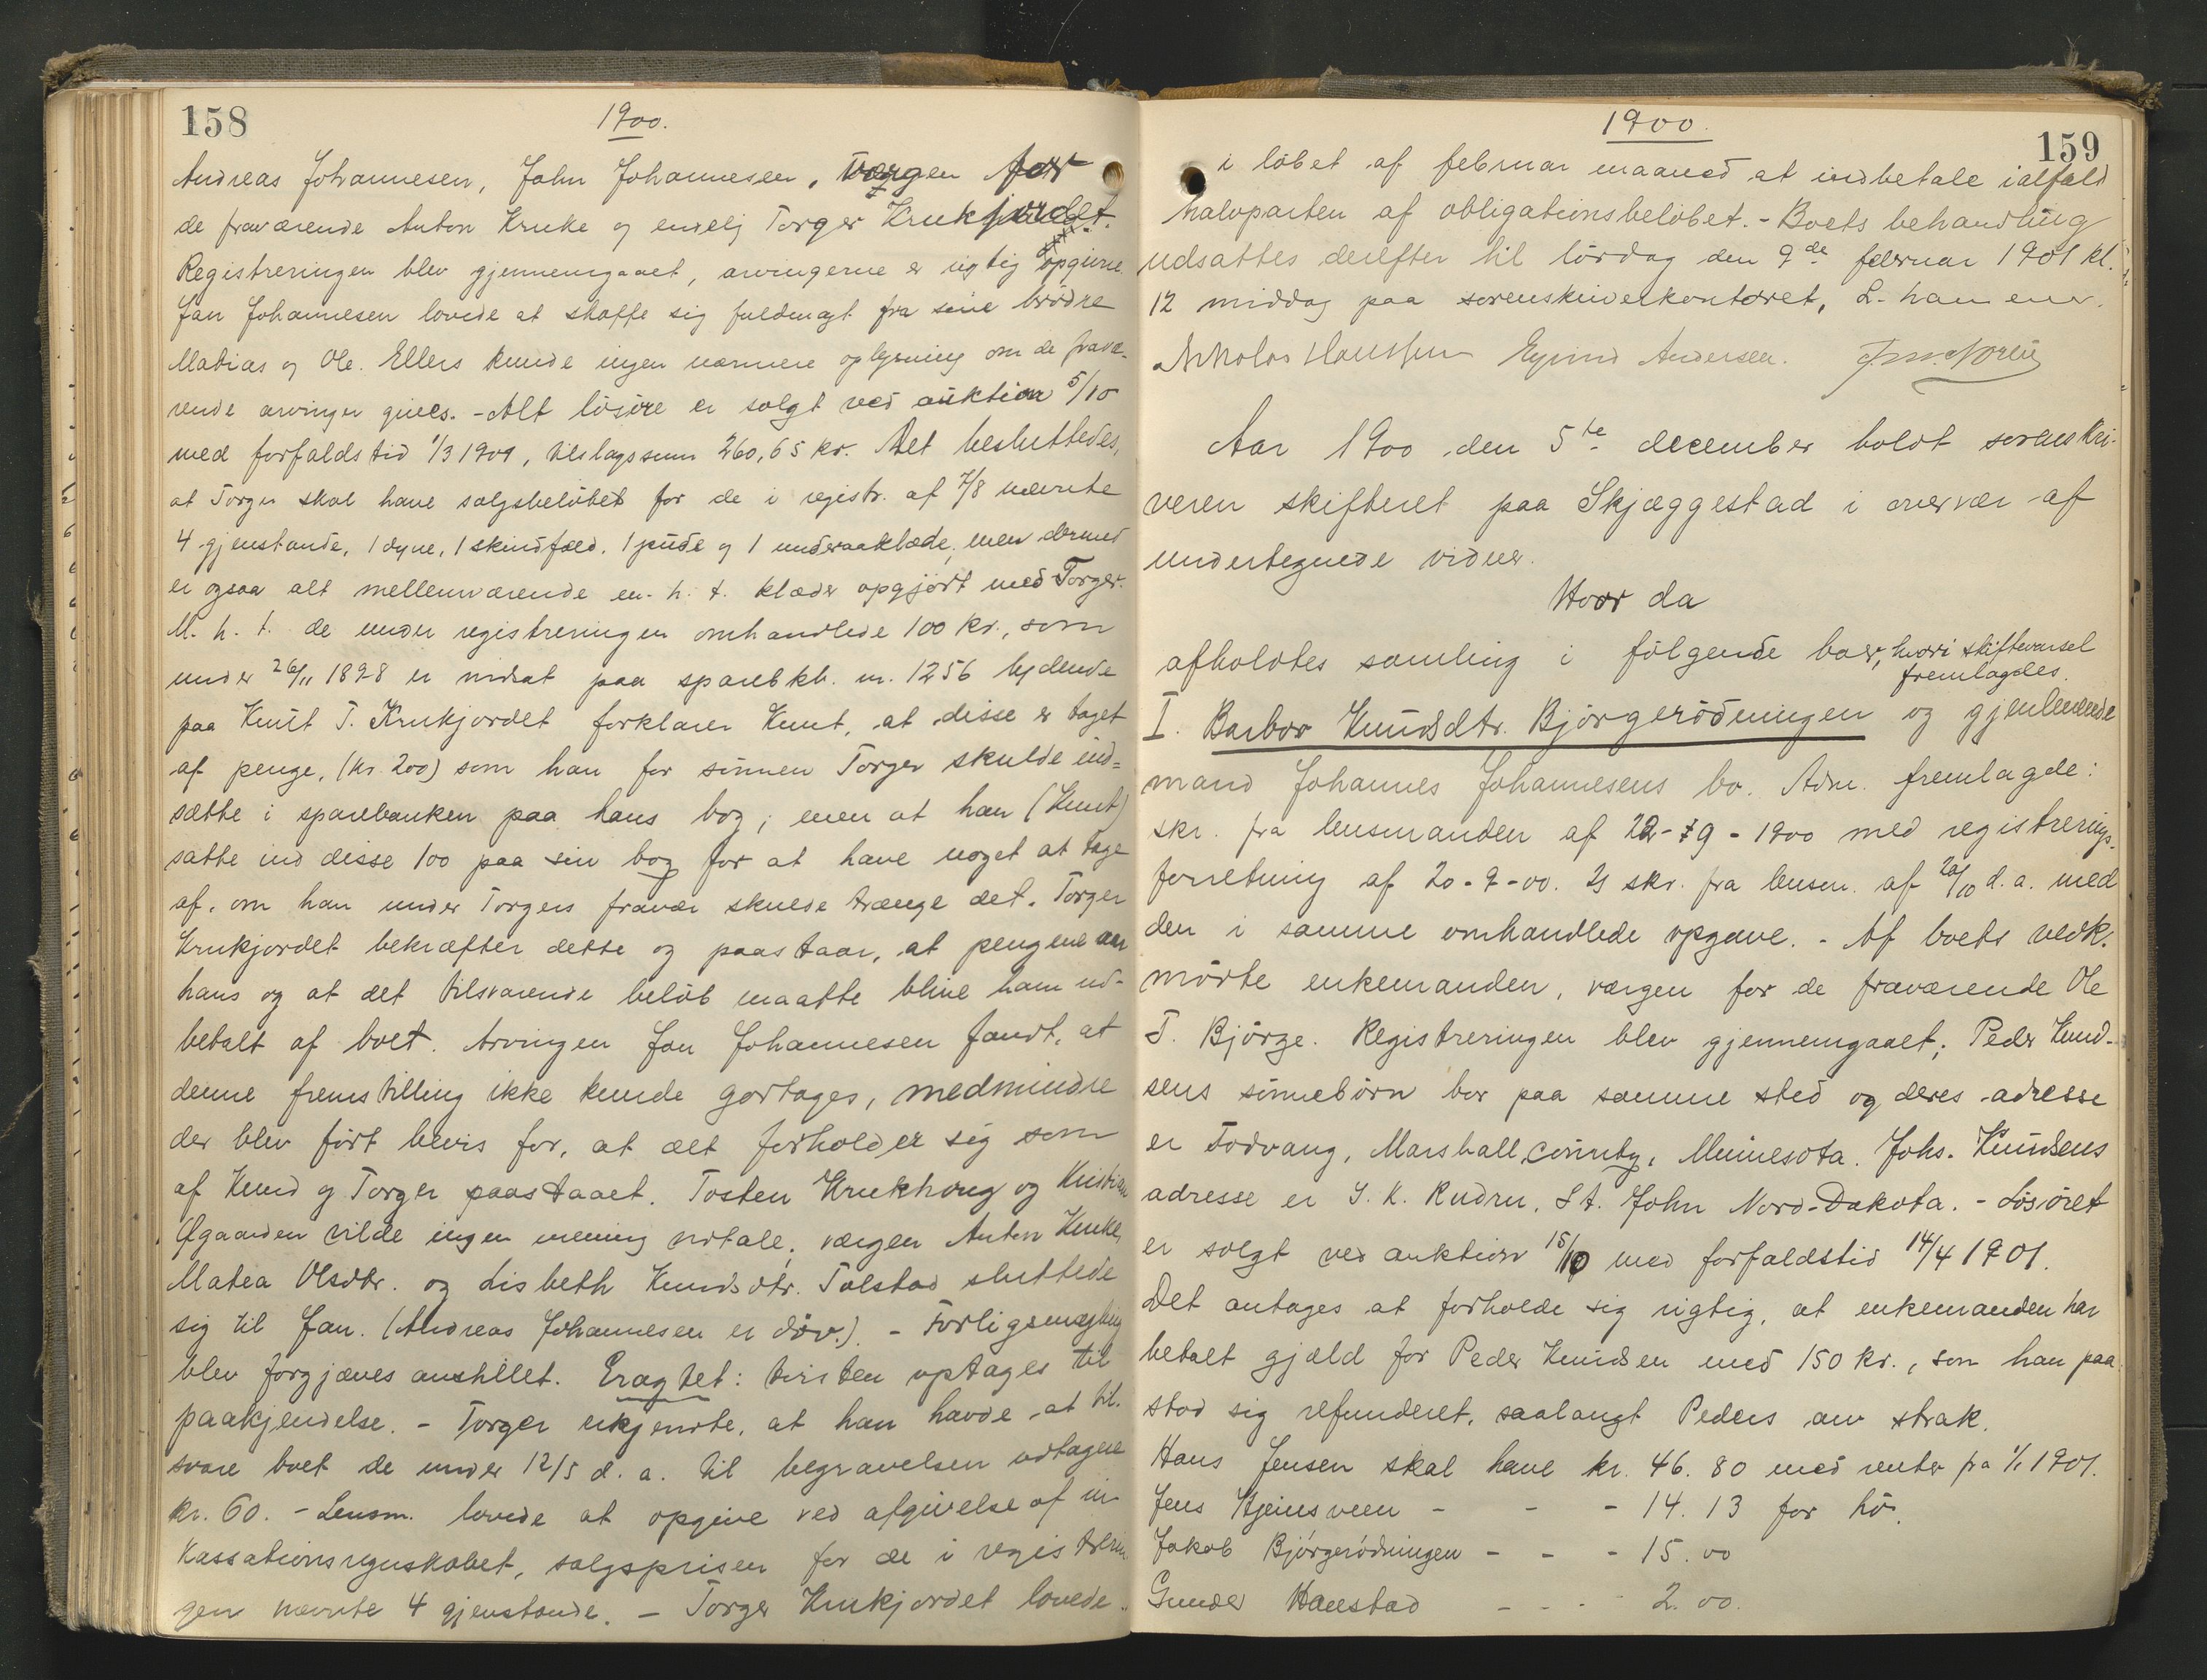 158
1900.
Andreas Johannesen, John Johannesen, værgen for
de fraværende Anton Kruke og endelig Torger Krukjordet.
Registreringen blev gjennemgaaet, arvingerne er rigtig opgivne.
Jan Johannesen lovede at skaffe sig fuldmagt fra sine brødre
Matias og Ole. Ellers kunde ingen nærmere oplysning om de fravæ-
rende arvinger gives. - Alt løsøre er solgt ved auktion 5/10
med forfaldstid 1/3 1901, tilslagssum 260,65 kr. Det besluttedes,
at Torger skal have salgsbeløbet for de i registr. af 7/8 nævnte
4 gjenstande, 1 dyne, 1 skindfæld, 1 pude og 1 underaaklæde, men dermed
er ogsaa alt mellemværende m. h. t. klæder opgjort med Torger.
M. h. t. de under registreringen omhandlede 100 kr., som
under 26/11 1898 er indsat paa sparebkb. nr. 1256 lydende
paa Knut T. Krukjordet forklarer Knut, at disse er taget
af penge, (kr. 200) som han for sønnen Torger skulde ind=
sætte i sparebanken paa hans bog; men at han (Knut)
satte ind disse 100 paa sin bog for at have noget at tage
af, om han under Torgers fravær skulde trænge det. Torger
Krukjordet bekræfter dette og paastaar, at pengene er
hans og at det tilsvarende beløb maatte blive ham ud-
betalt af boet. Arvingen Jan Johannesen fandt, at
denne fremstilling ikke kunde godtages, medmindre
der blev ført bevis for, at det forholder sig som
af Knud og Torger paastaaet. Tosten Krukhaug og Kristian
Øgaarden vilde ingen mening udtale; værgen Anton Kruke,
Matea Olsdtr. og Lisbeth Knudsdtr. Tolstad sluttede
sig til Jan. (Andreas Johannesen er døv.) - Forligsmægling
blev forgjæves anstillet. Eragtet: tvisten optages til
paakjendelse. - Torger erkjendte, at han havde at til-
svare boet de under 12/5 d. a. til begravelsen udtagne
kr. 60. - Lensm. lovede at opgive ved afgivelse af in-
kassationsregnskabet, salgsprisen for de i registrerin-
gen nævnte 4 gjenstande. - Torger Krukjordet lovede
1900.
159
i løbet af februar maaned at indbetale ialfald
halvparten af obligationsbeløbet. - Boets behandling
udsattes derefter til lørdag den 9de februar 1901 kl.
12 middag paa sorenskriverkontoret, L. hammer.
Nikolai Hanssen Eyvind Andersen.
Aar 1900 den 5te december holdt sorenskri-
veren skifteret paa Skjæggestad i overvær af
undertegnede vidner.
Hvor da
afholdtes samling i følgende boer, hvori skiftevarsel
fremlagdes.
I. Barbro Knudsdtr. Bjørgerødningen og gjenlevende
mand Johannes Johannesens bo. Adm. fremlagde:
skr. fra lensmanden af 22-9-1900 med registrerings-
forretning af 20-9-00. 2) skr. fra lensm. af 20/10 d. a. med
den i samme omhandlede opgave. - Af boets vedk.
mødte enkemanden, værgen for de fraværende Ole
T. Bjørge. Registreringen blev gjennemgaaet; Peder Knud-
sens sønnebørn bor paa samme sted og deres adresse
er Fodvang, Marshall county, Minnesota. Johs. Knudsens
adresse er J. K. Rudru, St. John Nord-Dakota. - Løsøret
er solgt ved auktion 15/10 med forfaldstid 14/4 1901.
Det antages at forholde sig rigtig, at enkemanden har
betalt gjæld for Peder Knudsen med 150 kr., som han paa-
stod sig refunderet, saalangt Peders arv strak.
Hans Jensen skal have kr. 46.80 med renter fra 1/1 1901.
Jens Hjeinsveen - - - 14.13 for hø.
Jakob Bjørgerødningen - - - 15.00
Gunder Hanestad - - - 2.00.